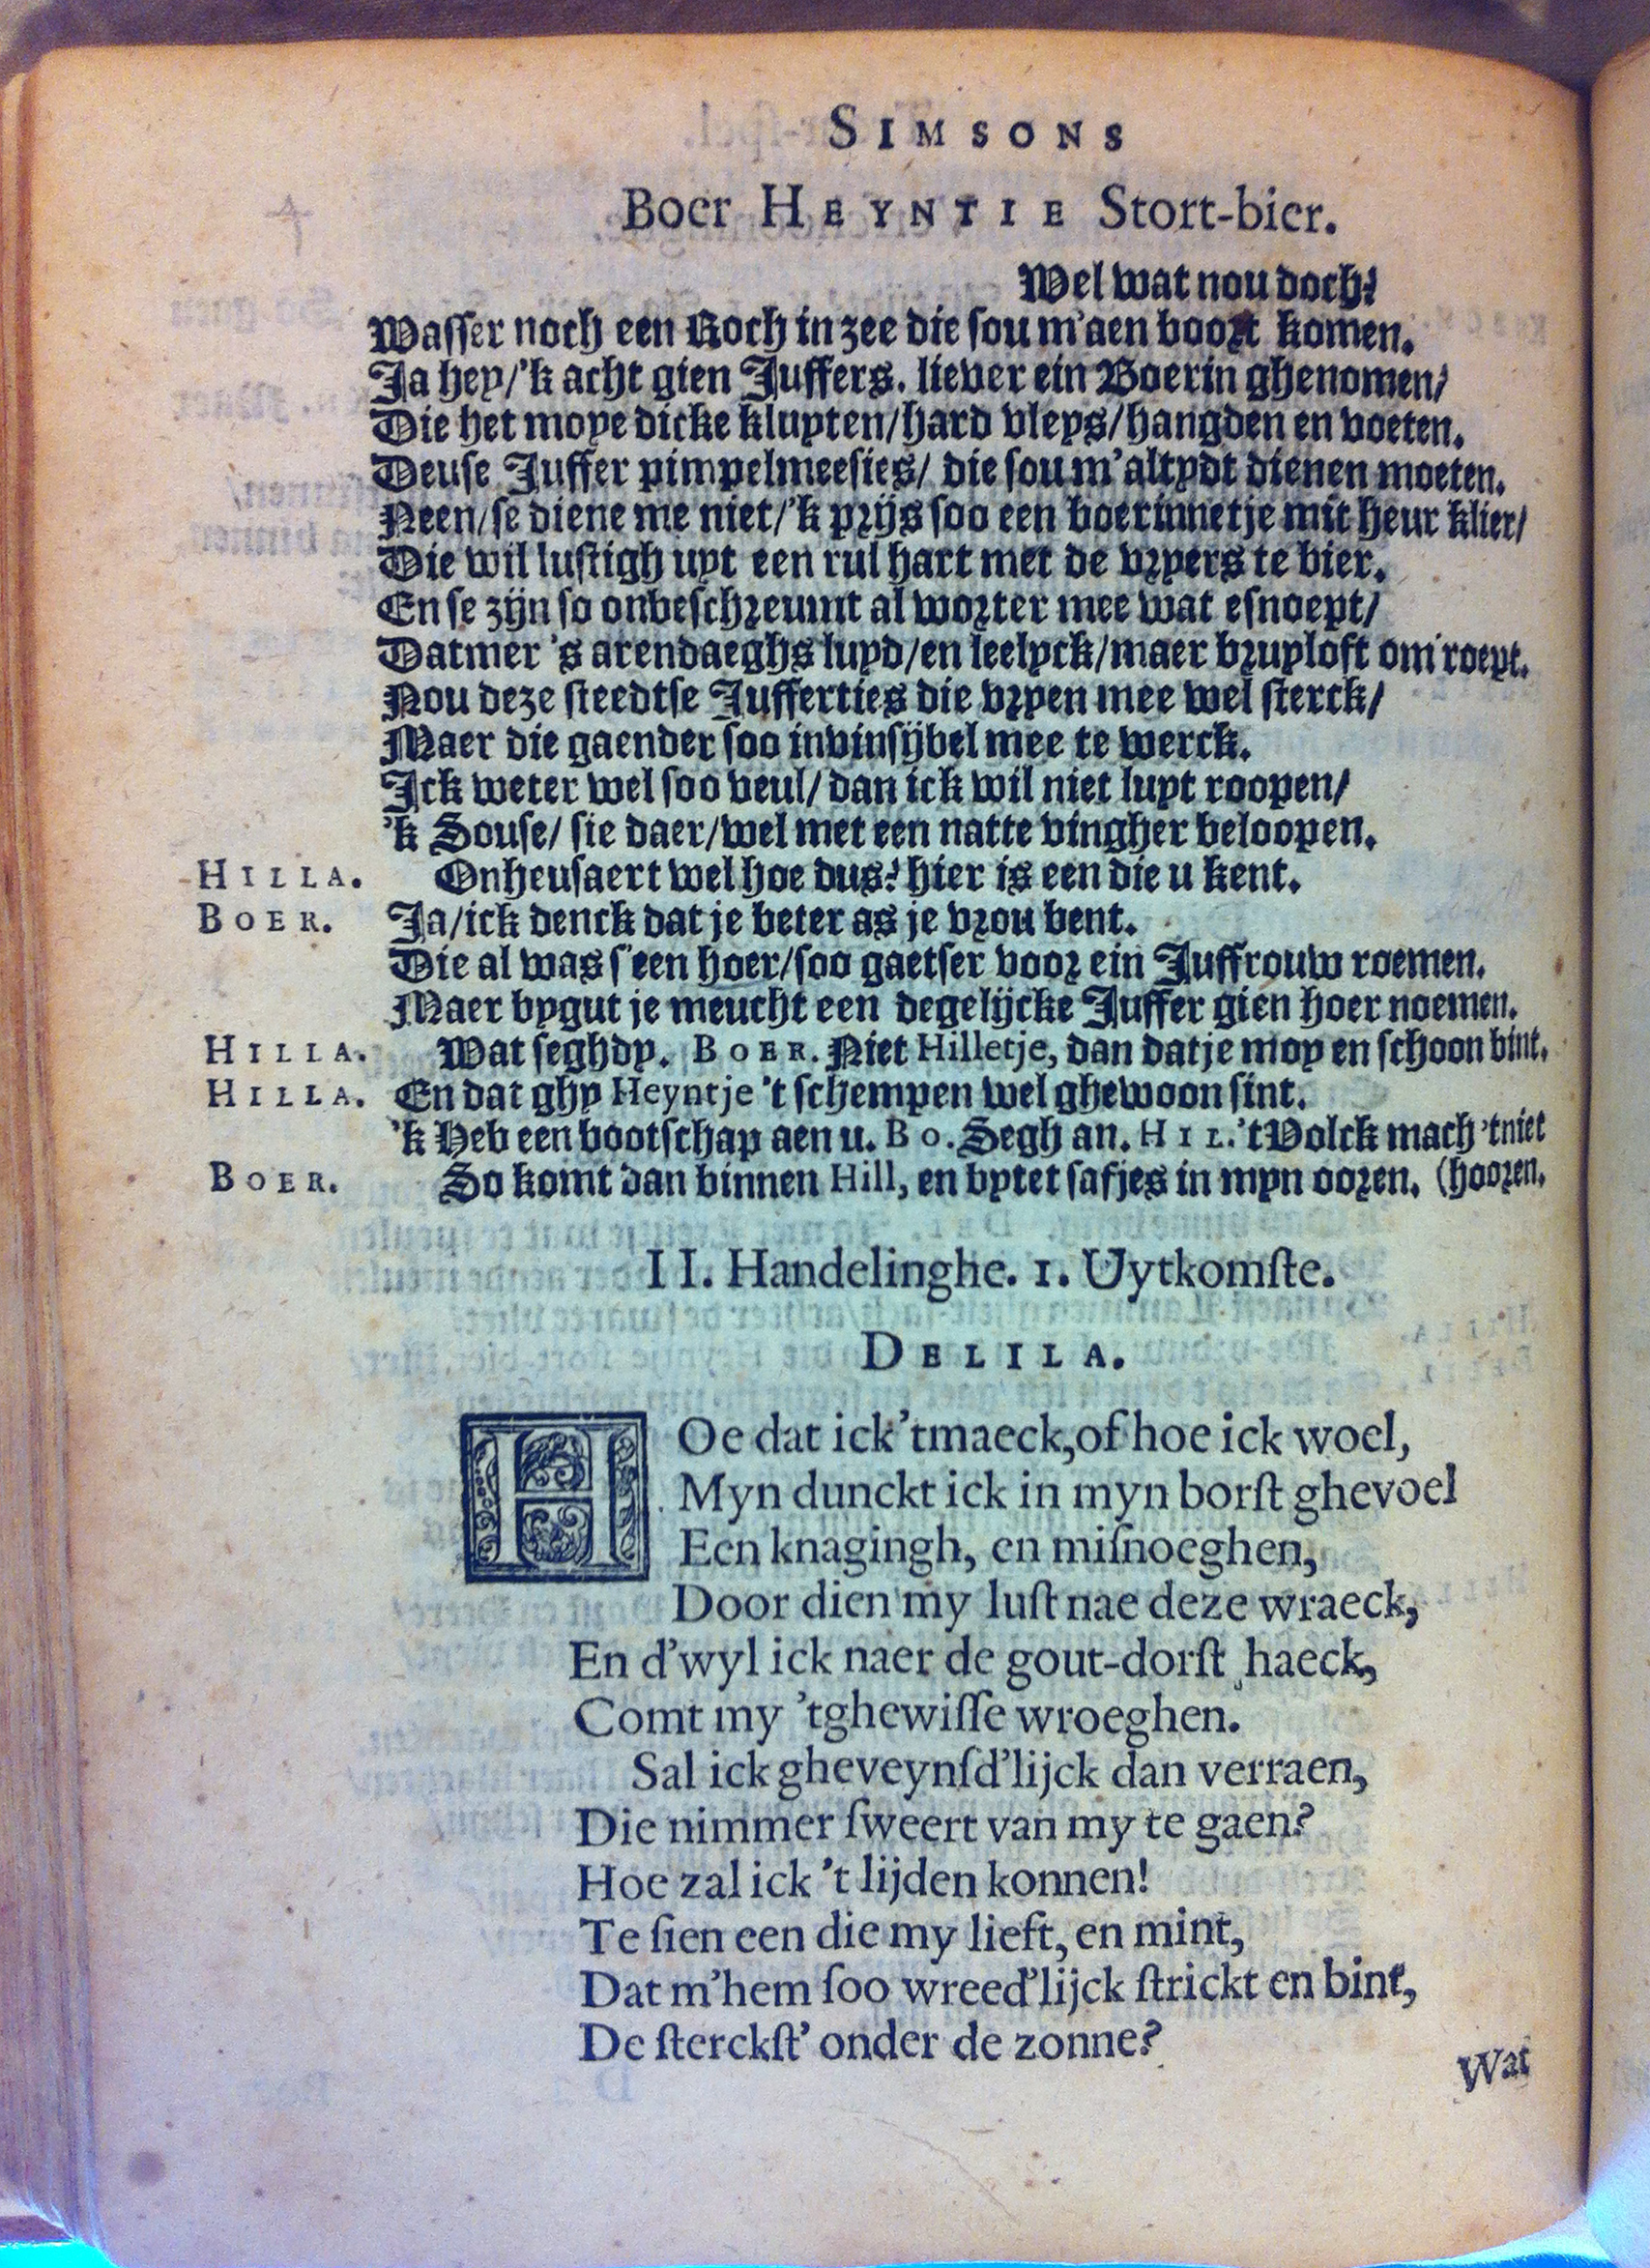 SIMSONS
Boer HEYNTIE Stort-bier.
Wel wat nou doch?
Wasser noch een Roch in zee die sou m'aen boort komen.
Ja hey/'k acht gien Juffers. liever ein Boerin ghenomen/
Die het moye dicke kluyten/hard vleys/hangden en voeten.
Deuse Juffer pimpelmeesies/ die sou m'altydt dienen moeten.
Neen/se diene me niet/'k prijs soo een boerinnetje mit heur klier/
Die wil lustigh uyt een rul hart met de vryers te bier.
En se zijn so onbeschreumt al worter mee wat esnoept/
Datmer 's arendaeghs luyd/en leelyck/maer bruyloft om roept.
Nou deze steedtse Jufferties die vryen mee wel sterck/
Maer die gaender soo invinsijbel mee te werck.
Ick weter wel soo veul/dan ick wil niet luyt roopen/
'k Souse/ sie daer/wel met een natte vingher beloopen.
HILLA. Onheusaert wel hoe dus? hier is een die u kent.
BOER. Ja/ick denck dat je beter as je vrou bent.
Die al was s'een hoer/soo gaetser voor ein Juffrouw roemen.
Maer bygut je meucht een degelijcke Juffer gien hoer noemen.
HILLA. Wat seghdy. BOER. Niet Hilletje, dan datje moy en schoon bint.
HILLA. En dat ghy Heyntje 't schempen wel ghewoon sint.
'k Heb een bootschap aen u. Bo. Segh an. HIL. 'tVolck mach 'tniet
BOER. So komt dan binnen Hill, en bytet safjes in myn ooren. (hooren.
II. Handelinghe. 1. Uytkomſte.
DELILA.
HOe dat ick 'tmaeck, of hoe ick woel,
Myn dunckt ick in myn borſt ghevoel
Een knagingh, en miſnoeghen,
Door dien my luſt nae deze wraeck,
En d'wyl ick naer de gout-dorſt haeck,
Comt my 'tghewiſſe wroeghen.
Sal ick gheveynſd'lijck dan verraen,
Die nimmer ſweert van my te gaen?
Hoe zal ick 't lijden konnen!
Te ſien een die my lieft, en mint,
Dat m'hem ſoo wreed'lijck ſtrickt en bint,
De ſterckſt' onder de zonne?
Wat